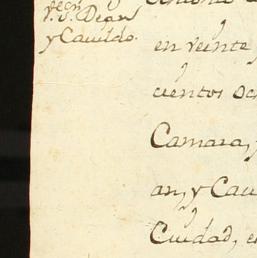 Dean
y Cavildo.
en veinte
cientos oc
Camara,
an, y Cav
Ciudad, e